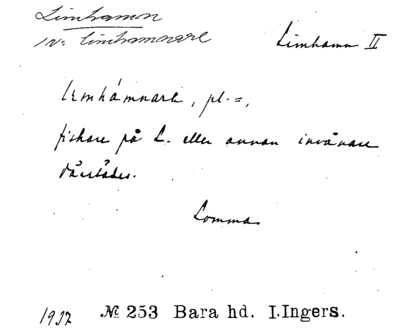 Limhamn
Inv. limhamnare
Limhamn II
lemhámnare, pl. =,
fiskare på L. eller annan invånare
därstädes.
Lomma
1937 № 253 Bara hd. I. Ingers.